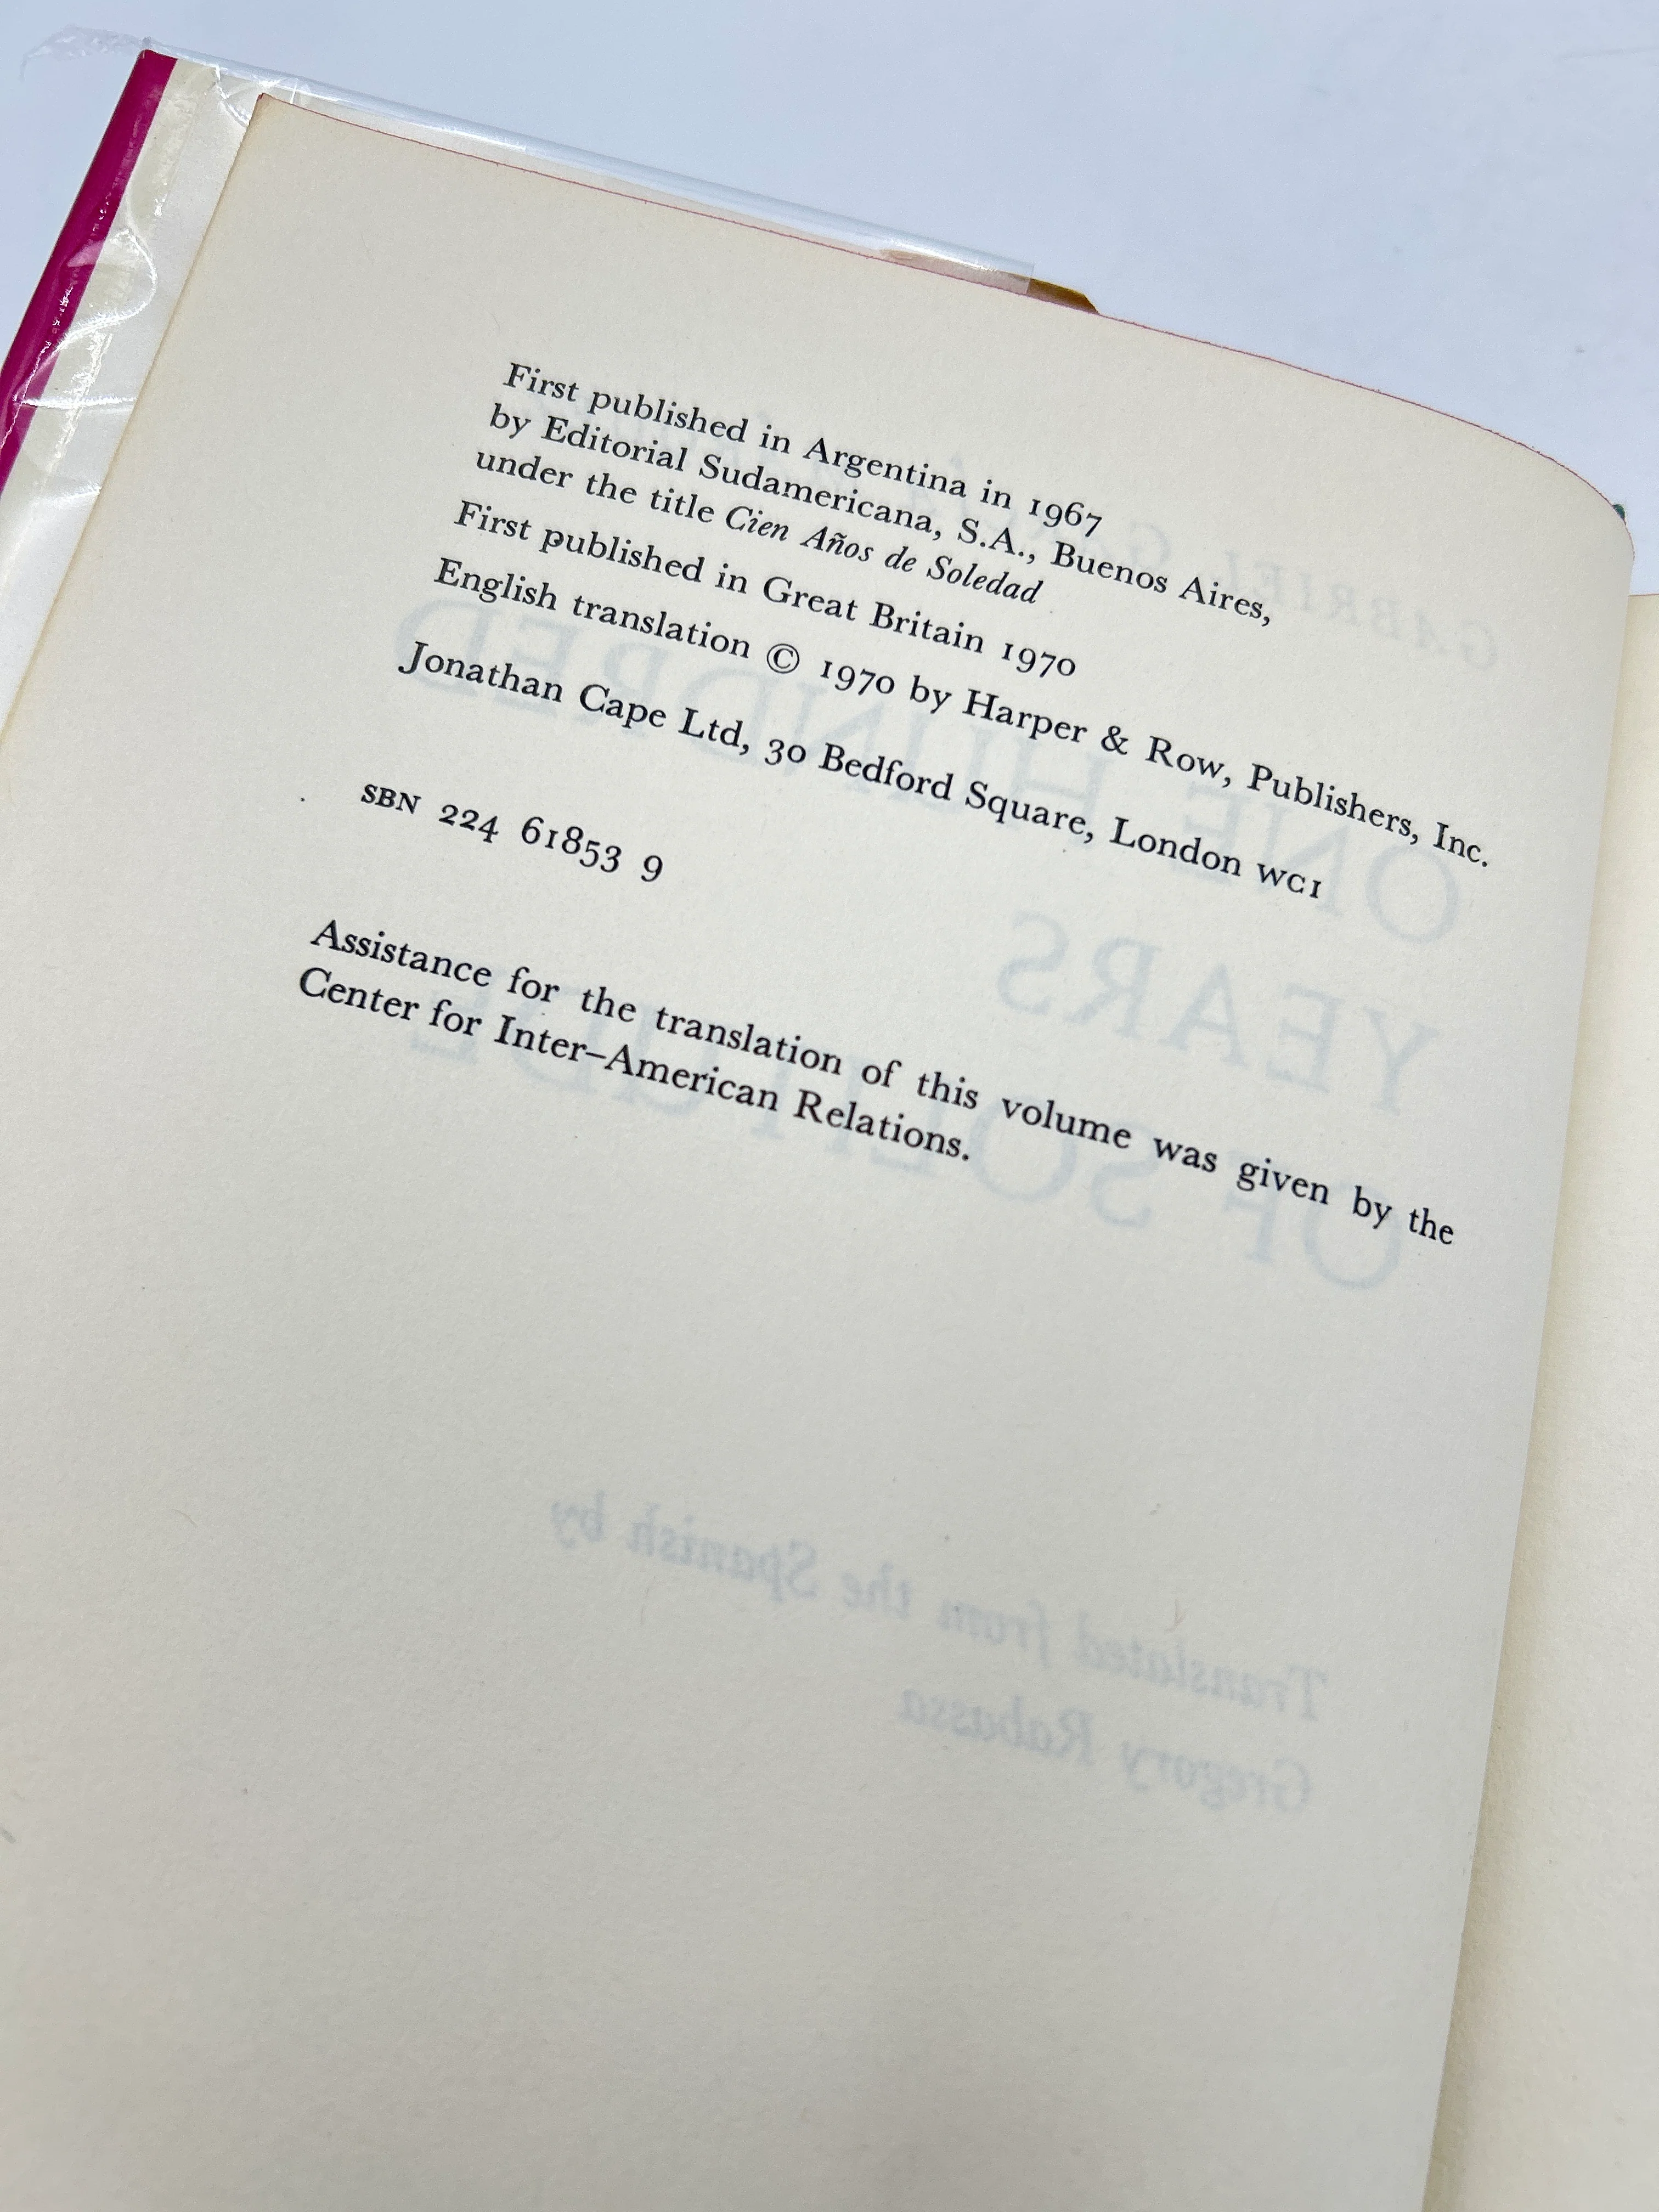 First published in Argentina in 1967
by Editorial Sudamericana, S.A., Buenos Aires,
under the title Cien Años de Soledad
First published in Great Britain 1970
English translation © 1970 by Harper & Row, Publishers, Inc.
Jonathan Cape Ltd, 30 Bedford Square, London WC1
SBN 224 61853 9
Assistance for the translation of this volume was given by the
Center for Inter–American Relations.
GABRIEL
ONE HUNDRED
YEARS
OF SOLITUDE
Translated from the Spanish by
Gregory Rabassa